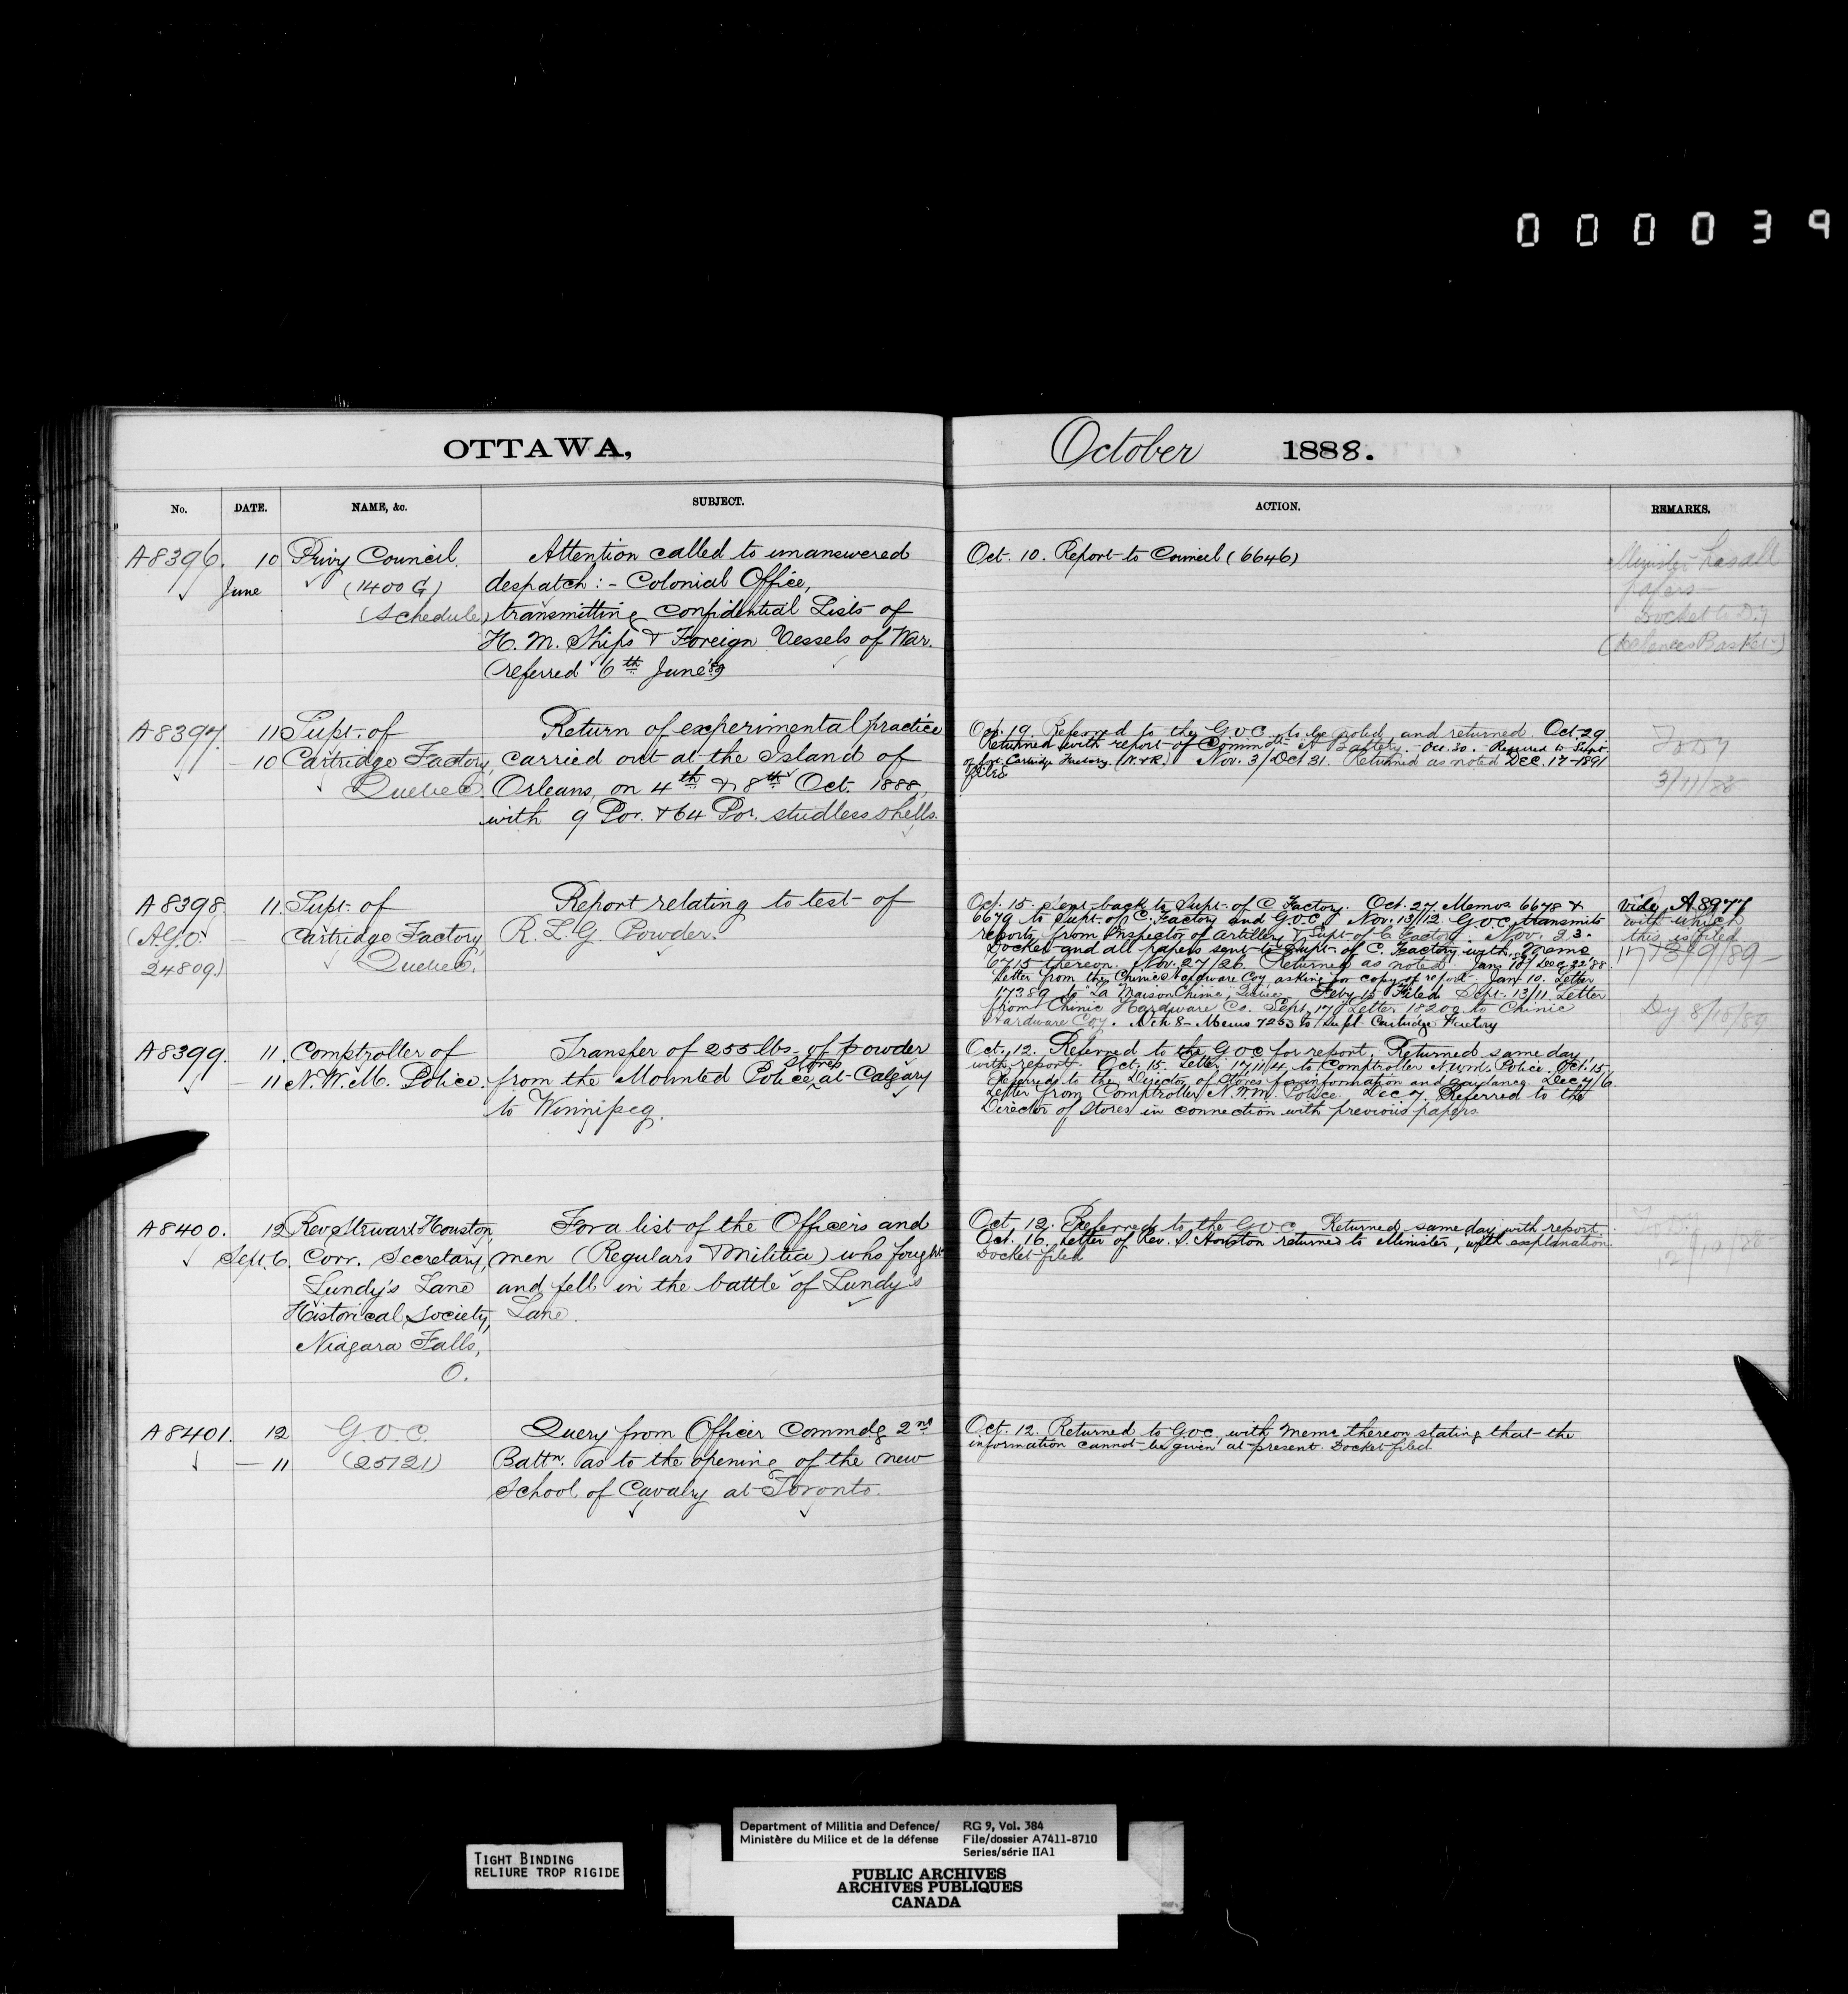 000039
OTTAWA,
October 1888.
No. DATE. NAME, &c. SUBJECT. ACTION. REMARKS.
A8396. 10 Privy Council. Attention called to unanswered
June (1400 G) despatch:- Colonial Office,
(Schedule) transmitting confidential Lists of
H. M. Ships & Foreign Vessels of War.
(referred 6th June
Oct. 10. Report to Council (6646)
Minister has all
papers
Docket to Dy
A8397. 11 Supt. of Return of experimental practice
- 10 Cartridge Factory, carried out at the Island of
Quebec. Orleans, on 4th & 8th Oct. 1888,
with 9 Por. & 64 Por. studless shells.
Oct. 19. Referred to the G.O.C. to be noted, and returned. Oct. 29.
Returned with report of Commdt A Battery. Oct. 30. Referred to Supt.
of Cartridge Factory. (N.&R.) Nov. 3/Oct 31. Returned as noted Dec. 17-1891
filed
To Dy
3/11/88
A8398. 11. Supt. of Report relating to test of
(A.G.O. - Cartridge Factory, R. L. G. Powder.
24809) Quebec.
Oct. 15. Sent back to Supt. of C Factory. Oct. 27. Memos 6678 &
6679 to Supt. of C. Factory and G.O.C. Nov. 13/12. G.O.C. transmits
reports from Inspector of Artillery & Supt. of C. Factory. Nov. 23.
Docket and all papers sent to Supt. of C. Factory with Memo
6715 thereon. Nov. 27/26. Returned as noted. Jan 10/Dec 22 '88
Letter from the Chinic Hardware Coy, asking for copy of report. Jan 10. Letter
17389 to "La Maison Chinic," Quebec. Feby 15 Filed Sept. 13/11. Letter
from Chinic Hardware Co. Sept. 17 Letter 18209 to Chinic
Hardware Coy. Mch 8- Memo 7253 to Supt. Cartridge Factory
Vide A8977
with which
this is filed
13/9/89
Dy 8/10/89
A8399. 11. Comptroller of Transfer of 255 lbs. of powder
- 11 N. W. M. Police. from the Mounted Police Stores at Calgary
to Winnipeg.
Oct. 12. Referred to the G.O.C. for report. Returned same day,
with report. Oct. 15. Letter 17114, to Comptroller N.W.M. Police. Oct. 15.
Referred to the Director of Stores for information and guidance. Dec 7/6.
Letter from Comptroller N.W.M. Police. Dec 7. Referred to the
Director of Stores in connection with previous papers.
A8400. 12 Rev. Stewart Houston, For a list of the Officers and
Sept. 6. Corr. Secretary, men (Regulars & Militia) who fought
Lundy's Lane and fell in the battle of Lundy's
Historical Society, Lane.
Niagara Falls,
O.
Oct 12. Referred to the G.O.C. Returned same day with report.
Oct. 16. Letter of Rev. S. Houston returned to Minister, with explanation.
Docket filed
12/10/88
A8401. 12 G.O.C. Query from Officer Commdg 2nd
- 11 (25121) Battn. as to the opening of the new
School of Cavalry at Toronto.
Oct. 12. Returned to G.O.C. with Memo thereon stating that the
information cannot be given at present. Docket filed.
TIGHT BINDING
RELIURE TROP RIGIDE
Department of Militia and Defence/
Ministère du Milice et de la défense
RG 9, Vol. 384
File/dossier A7411-8710
Series/série IIA1
PUBLIC ARCHIVES
ARCHIVES PUBLIQUES
CANADA